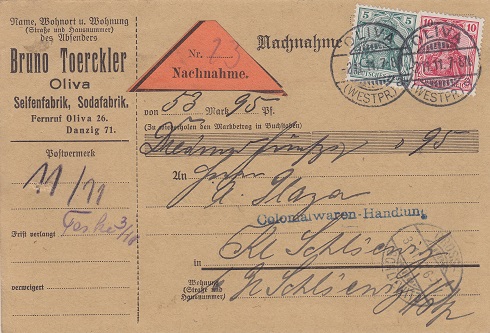 Name, Wohnort u. Wohnung
(Straße und Hausnummer)
des Absenders
Bruno Toerckler
Oliva
Seifenfabrik, Sodafabrik.
Fernruf Oliva 26.
Danzig 71.
Postvermerk
11/11
Frist verlangt
verweigert
Nr. 23
Nachnahme.
Nachnahme
5 5
10 10
OLIVA
(WESTPR.)
OLIVA
(WESTPR.)
von 53 Mark 95 Pf.
(Zu wiederholen den Markbetrag in Buchstaben)
95
An Herrn
Colonialwaren-Handlung
in Kl Schliewitz
Wohnung
(Straße und
Hausnummer)
Gr Schliewitz